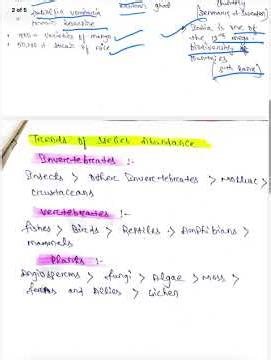 2 of 5
Rauwolfia vomitoria
1000+ varieties of mango
50,000+ strains of rice
India is one of
the 12th mega
biodiversity
Countries
Trends of species abundance
Invertebrates :-
Insects > Other Invertebrates > Mollusc >
Crustaceans
Vertebrates :-
fishes > Birds > Reptiles > Amphibians >
mammals
Plants :-
Angiosperms > fungi > Algae > Moss >
ferns and Allies > Lichen